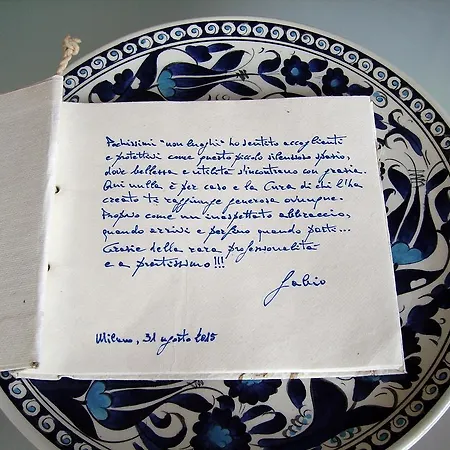 Pochissimi "non luoghi" ho sentito accoglienti
e protettivi come questo piccolo silenzioso spazio,
dove bellezza e utilità s'incontrano con grazia.
Qui nulla è per caso e la Cura di chi l'ha
creato te raggiunge generosa ovunque.
Proprio come un inaspettato abbraccio,
quando arrivi e perfino quando parti...
Grazie della rara professionalità
e a prestissimo!!!
Fabio
Milano, 31 agosto 2015